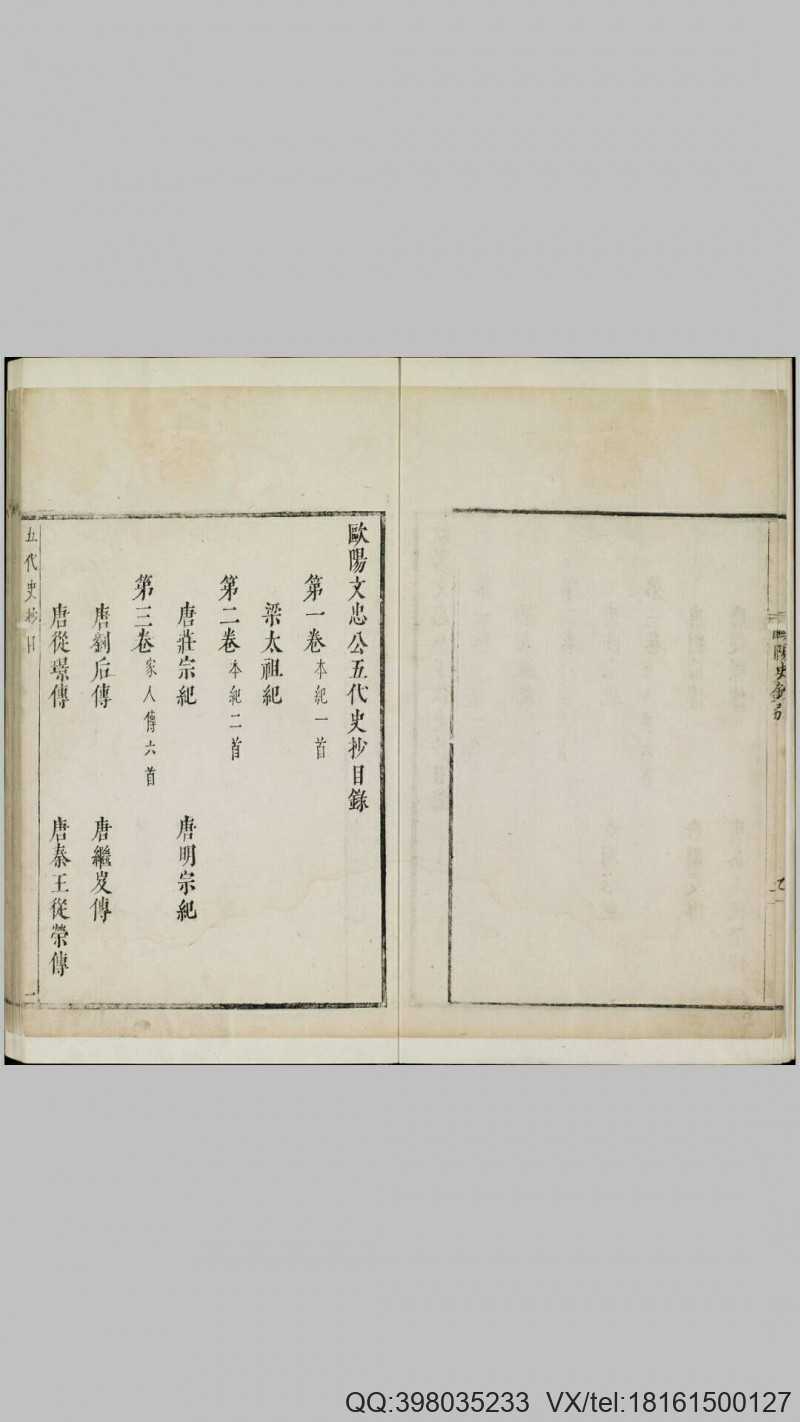 歐陽文忠公五代史抄目錄
第一卷 本紀一首
梁太祖紀
第二卷 本紀二首
唐莊宗紀 唐明宗紀
第三卷 家人傳六首
唐劉后傳 唐繼岌傳
唐從璟傳 唐秦王從榮傳
五代史抄目 一
QQ:398035233 VX/tel:18161500127